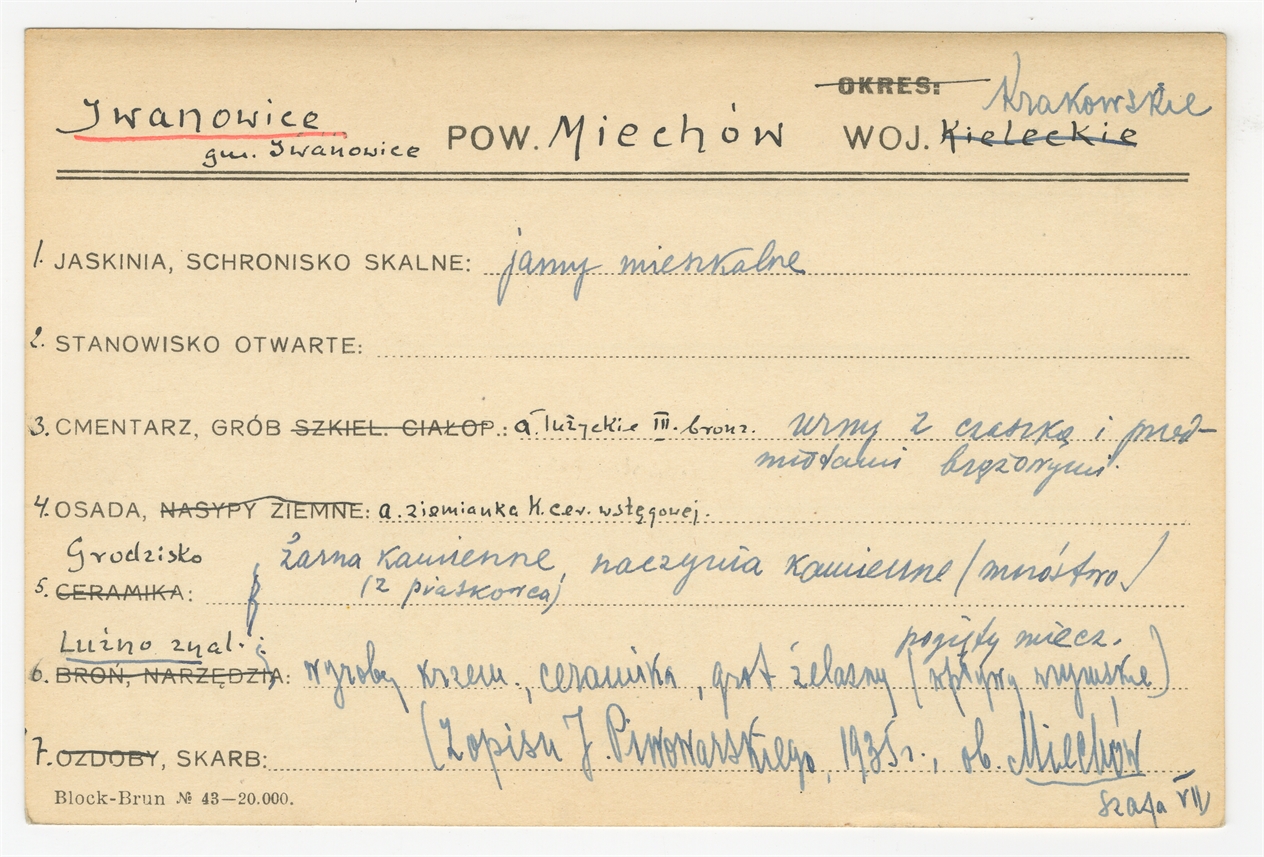 OKRES: Krakowskie
Iwanowice POW. Miechów WOJ. Kieleckie
gm. Iwanowice
1. JASKINIA, SCHRONISKO SKALNE: jamy mieszkalne
2. STANOWISKO OTWARTE:
3. CMENTARZ, GRÓB SZKIEL. CIAŁOP.: a. łużyckie III. bronz. urny z czaszką i przed-
miotami brązowymi.
4. OSADA, NASYPY ZIEMNE: a. ziemianka K. cer. wstęgowej.
Grodzisko żarna kamienne, naczynia kamienne (mnóstwo)
5. CERAMIKA: (z piaskowca)
Luźno znal.: pogięty miecz.
6. BROŃ, NARZĘDZIA: wyroby krzem., ceramika, grot żelazny (wpływy rzymskie)
7. OZDOBY, SKARB: (Zapisu J. Piwowarskiego, 1935 r., ob. Miechów
Block-Brun № 43—20.000. szafa VII)